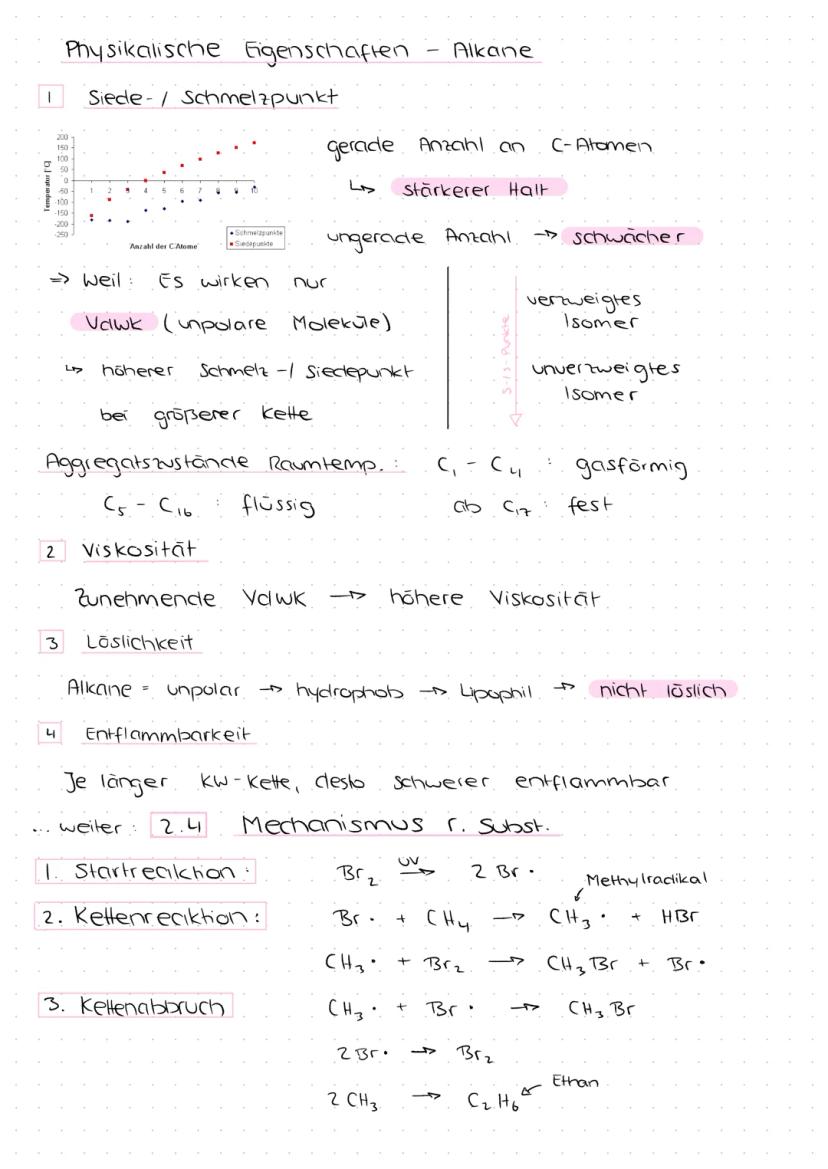 Physikalische Eigenschaften - Alkane
1 Siede- / Schmelzpunkt
200
150
100
50
0
-50
-100
-150
-200
-250
Temperatur [°C]
1 2 3 4 5 6 7 8 9 10
Anzahl der C-Atome
Schmelzpunkte
Siedepunkte
gerade Anzahl an C-Atomen
↳ stärkerer Halt
ungerade Anzahl → schwächer
=> Weil: Es wirken nur
VdWK (unpolare Moleküle)
↳ höherer Schmelz-/Siedepunkt
bei größerer Kette
S-/S-Punkte
verzweigtes
Isomer
unverzweigtes
Isomer
Aggregatszustände Raumtemp.: C₁ - C₄ : gasförmig
C₅ - C₁₆ : flüssig ab C₁₇ : fest
2 Viskosität
Zunehmende VdWK → höhere Viskosität
3 Löslichkeit
Alkane = unpolar → hydrophob → Lipophil → nicht löslich
4 Entflammbarkeit
Je länger KW-Kette, desto schwerer entflammbar
... weiter: 2.4 Mechanismus r. Subst.
1. Startreaktion: Br₂ UV→ 2 Br·
Methylradikal
2. Kettenreaktion: Br· + CH₄ → CH₃· + HBr
CH₃· + Br₂ → CH₃Br + Br·
3. Kettenabbruch CH₃· + Br· → CH₃Br
2 Br· → Br₂
2 CH₃ → C₂H₆ Ethan